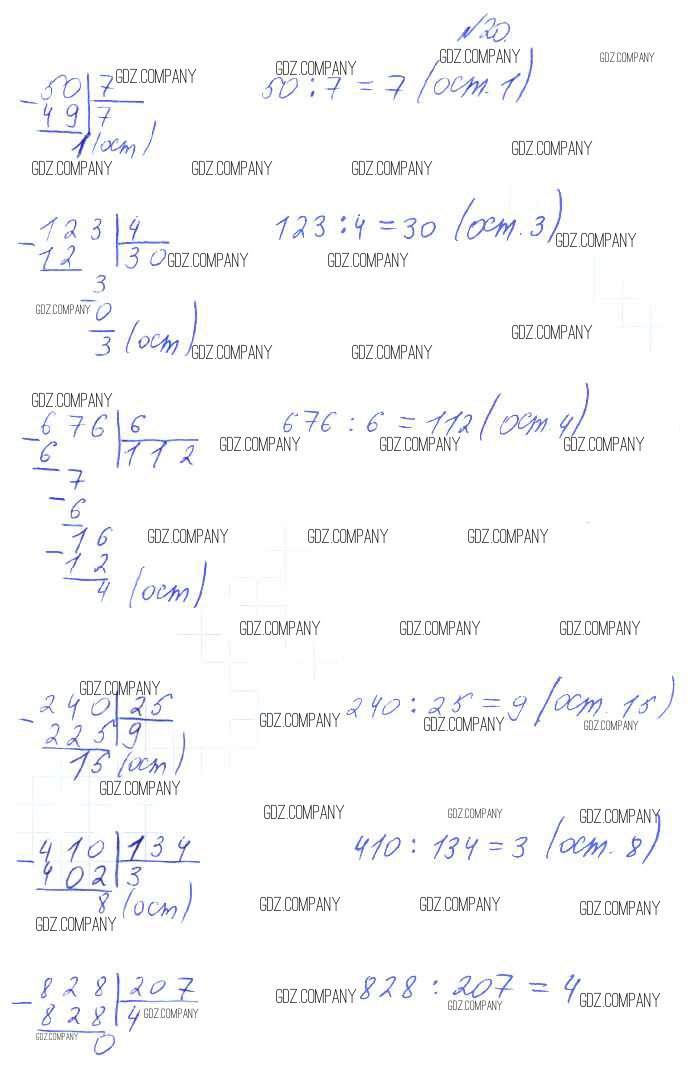 №20.
GDZ.COMPANY GDZ.COMPANY
50 7 GDZ.COMPANY GDZ.COMPANY 50 : 7 = 7 (ост. 1)
- 49 7
1 (ост)
GDZ.COMPANY
GDZ.COMPANY GDZ.COMPANY GDZ.COMPANY
- 123 4 123 : 4 = 30 (ост. 3)
12 30 GDZ.COMPANY GDZ.COMPANY GDZ.COMPANY
3
GDZ.COMPANY - 0
3 (ост) GDZ.COMPANY GDZ.COMPANY GDZ.COMPANY
GDZ.COMPANY
- 676 6 676 : 6 = 112 (ост. 4)
6 112 GDZ.COMPANY GDZ.COMPANY GDZ.COMPANY
7
- 6
16 GDZ.COMPANY GDZ.COMPANY GDZ.COMPANY
- 12
4 (ост)
GDZ.COMPANY GDZ.COMPANY GDZ.COMPANY
GDZ.COMPANY
- 240 25 240 : 25 = 9 (ост. 15)
225 9 GDZ.COMPANY GDZ.COMPANY GDZ.COMPANY
15 (ост)
GDZ.COMPANY
GDZ.COMPANY GDZ.COMPANY GDZ.COMPANY
- 410 134 410 : 134 = 3 (ост. 8)
402 3
8 (ост) GDZ.COMPANY GDZ.COMPANY GDZ.COMPANY
GDZ.COMPANY
- 828 207 828 : 207 = 4
828 4 GDZ.COMPANY GDZ.COMPANY GDZ.COMPANY GDZ.COMPANY
GDZ.COMPANY 0